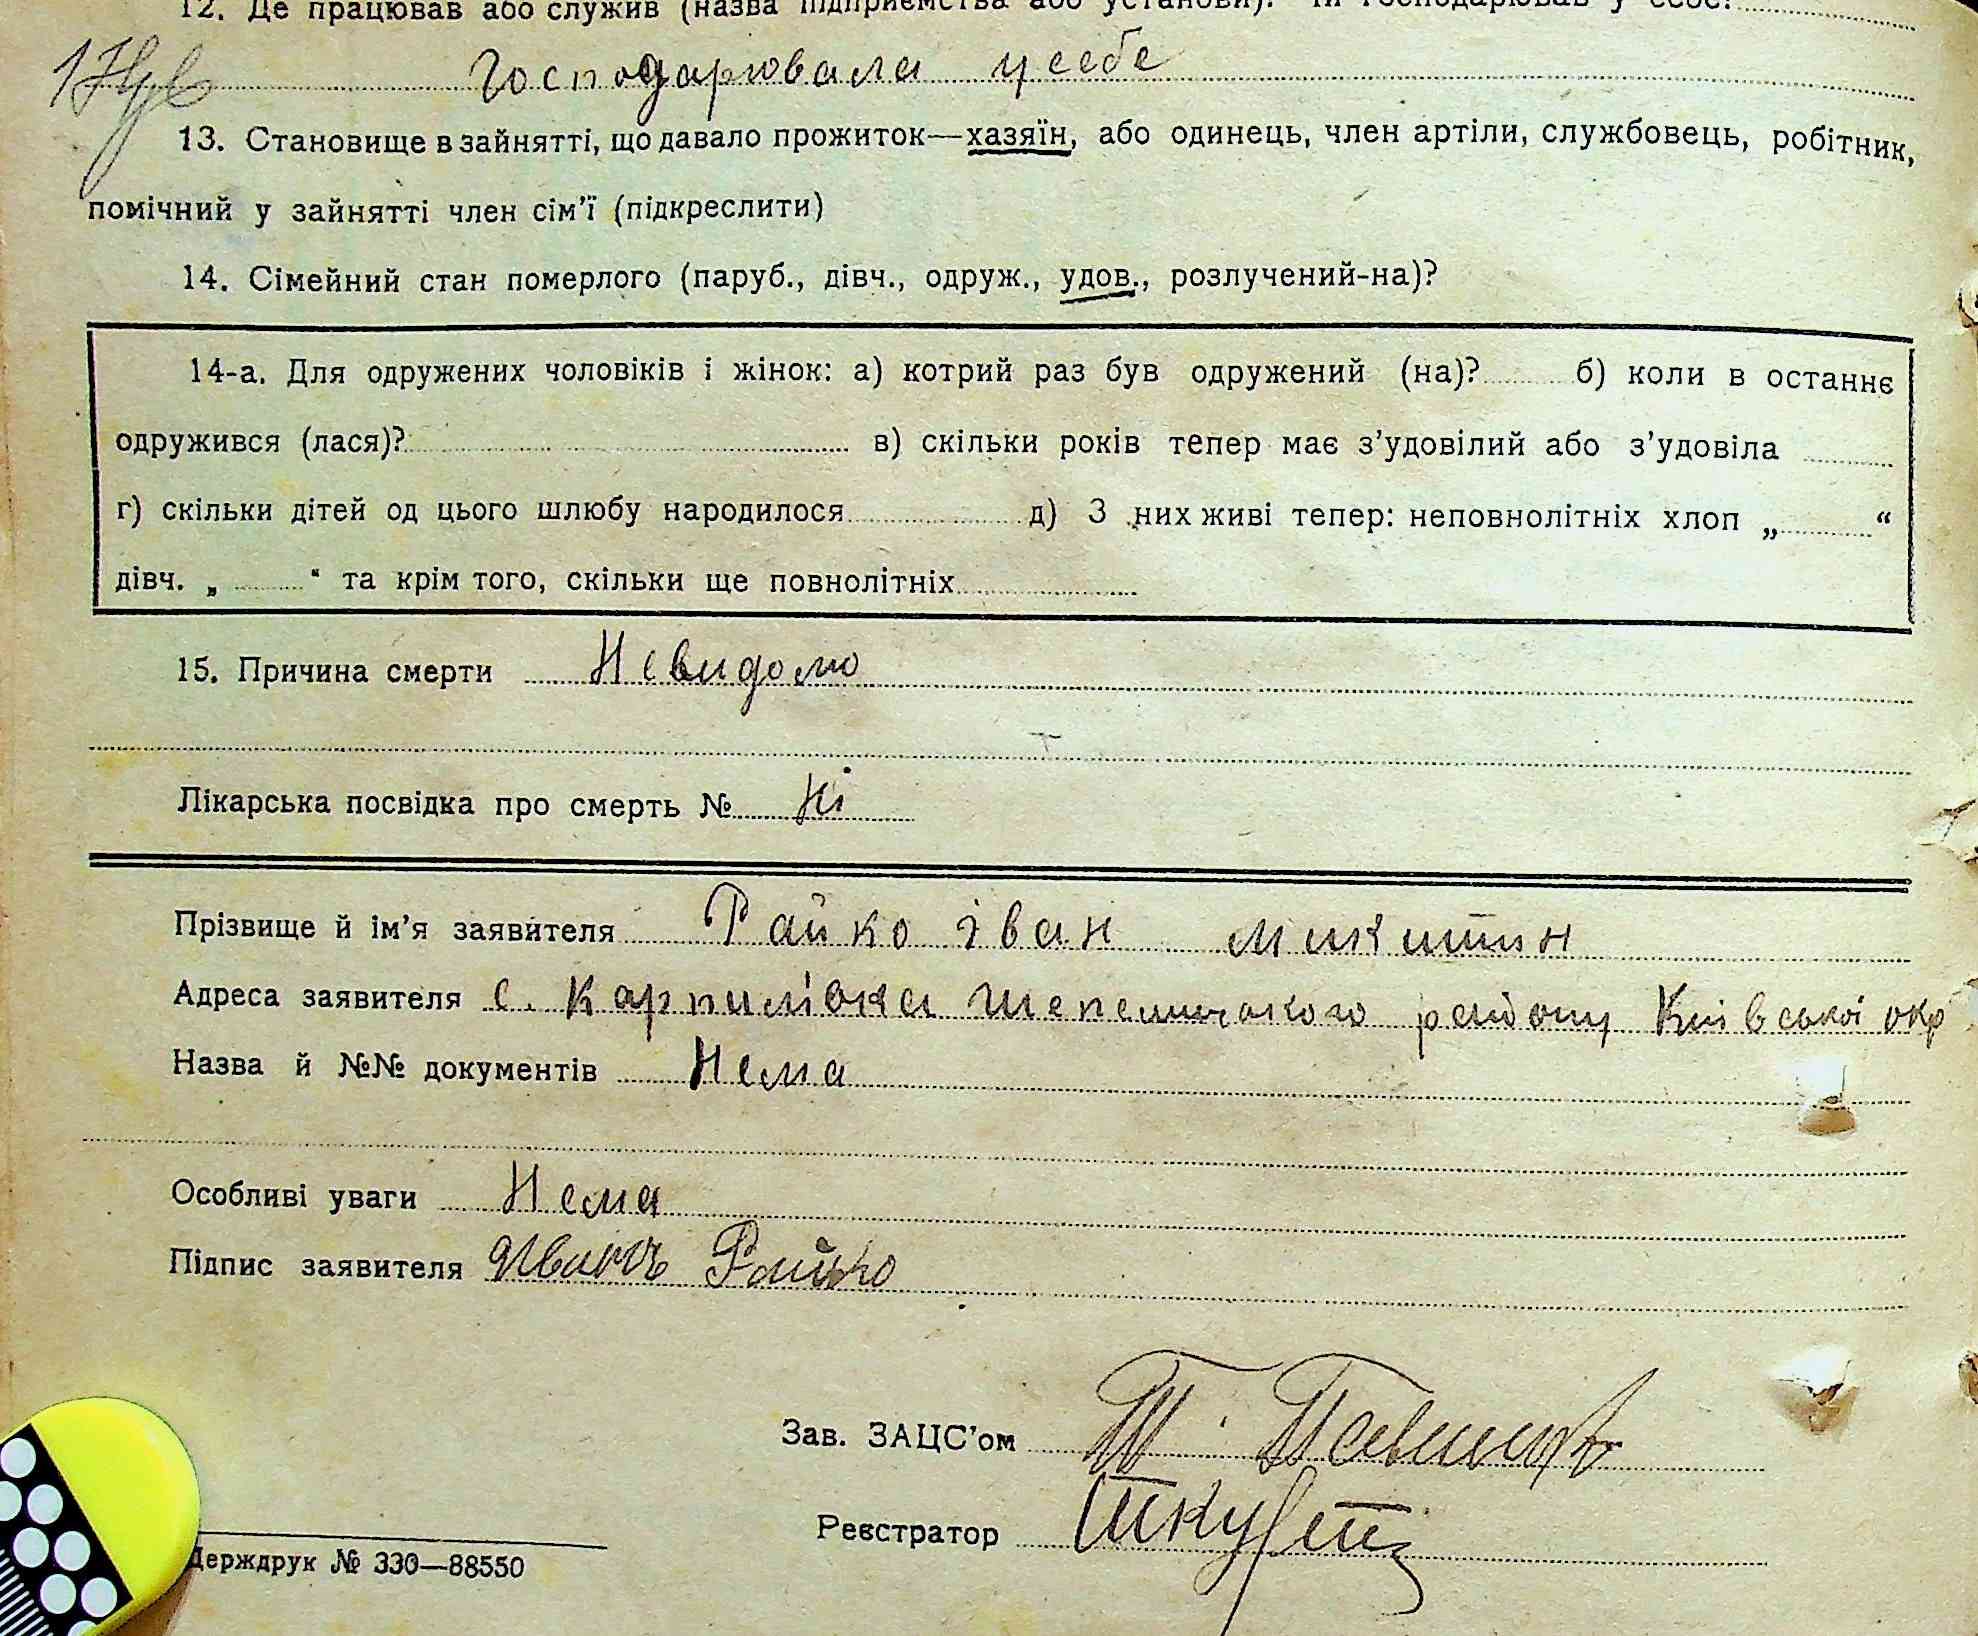 12. Де працював або служив (назва підприємства або установи). Чи господарював у себе?
Господарювала у себе
13. Становище в зайнятті, що давало прожиток—хазяїн, або одинець, член артіли, службовець, робітник,
помічний у зайнятті член сім'ї (підкреслити)
14. Сімейний стан померлого (паруб., дівч., одруж., удов., розлучений-на)?
14-а. Для одружених чоловіків і жінок: а) котрий раз був одружений (на)? б) коли в останнє
одружився (лася)? в) скільки років тепер має з'удовілий або з'удовіла
г) скільки дітей од цього шлюбу народилося д) З них живі тепер: неповнолітніх хлоп „ “
дівч. „ “ та крім того, скільки ще повнолітніх
15. Причина смерти Невидомо
Лікарська посвідка про смерть № Ні
Прізвище й ім'я заявителя Райко Іван Микитин
Адреса заявителя с. Карпилівка Шепелицького району Київської окр
Назва й №№ документів Нема
Особливі уваги Нема
Підпис заявителя Иванъ Райко
Зав. ЗАЦС'ом
Реєстратор
Держдрук № 330—88550